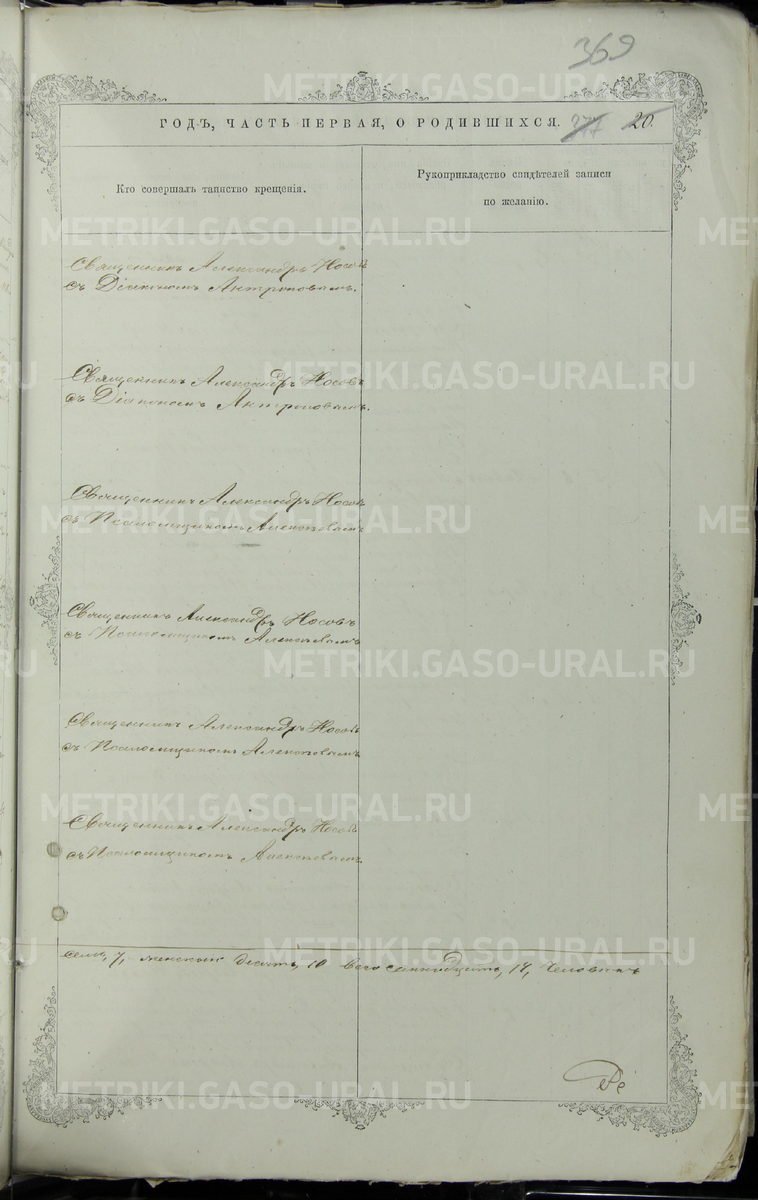 369
ГОДЪ, ЧАСТЬ ПЕРВАЯ, О РОДИВШИХСЯ. 277 20.
Кто совершалъ таинство крещенія.
Рукоприкладство свидѣтелей записи
по желанію.
Священникъ Александръ Носов
съ Діакономъ Антроповымъ.
Священникъ Александръ Носовъ
съ Діакономъ Антроповымъ.
Священникъ Александръ Носов
съ Псаломщикомъ
Священникъ Александръ Носовъ
съ Псаломщикомъ
Священникъ Александръ Носов
съ Псаломщикомъ
Священникъ Александръ Носов
съ Псаломщикомъ
семь, 7, женскихъ десять, 10 всего семнадцать, 17, человѣкъ
METRIKI.GASO-URAL.RU